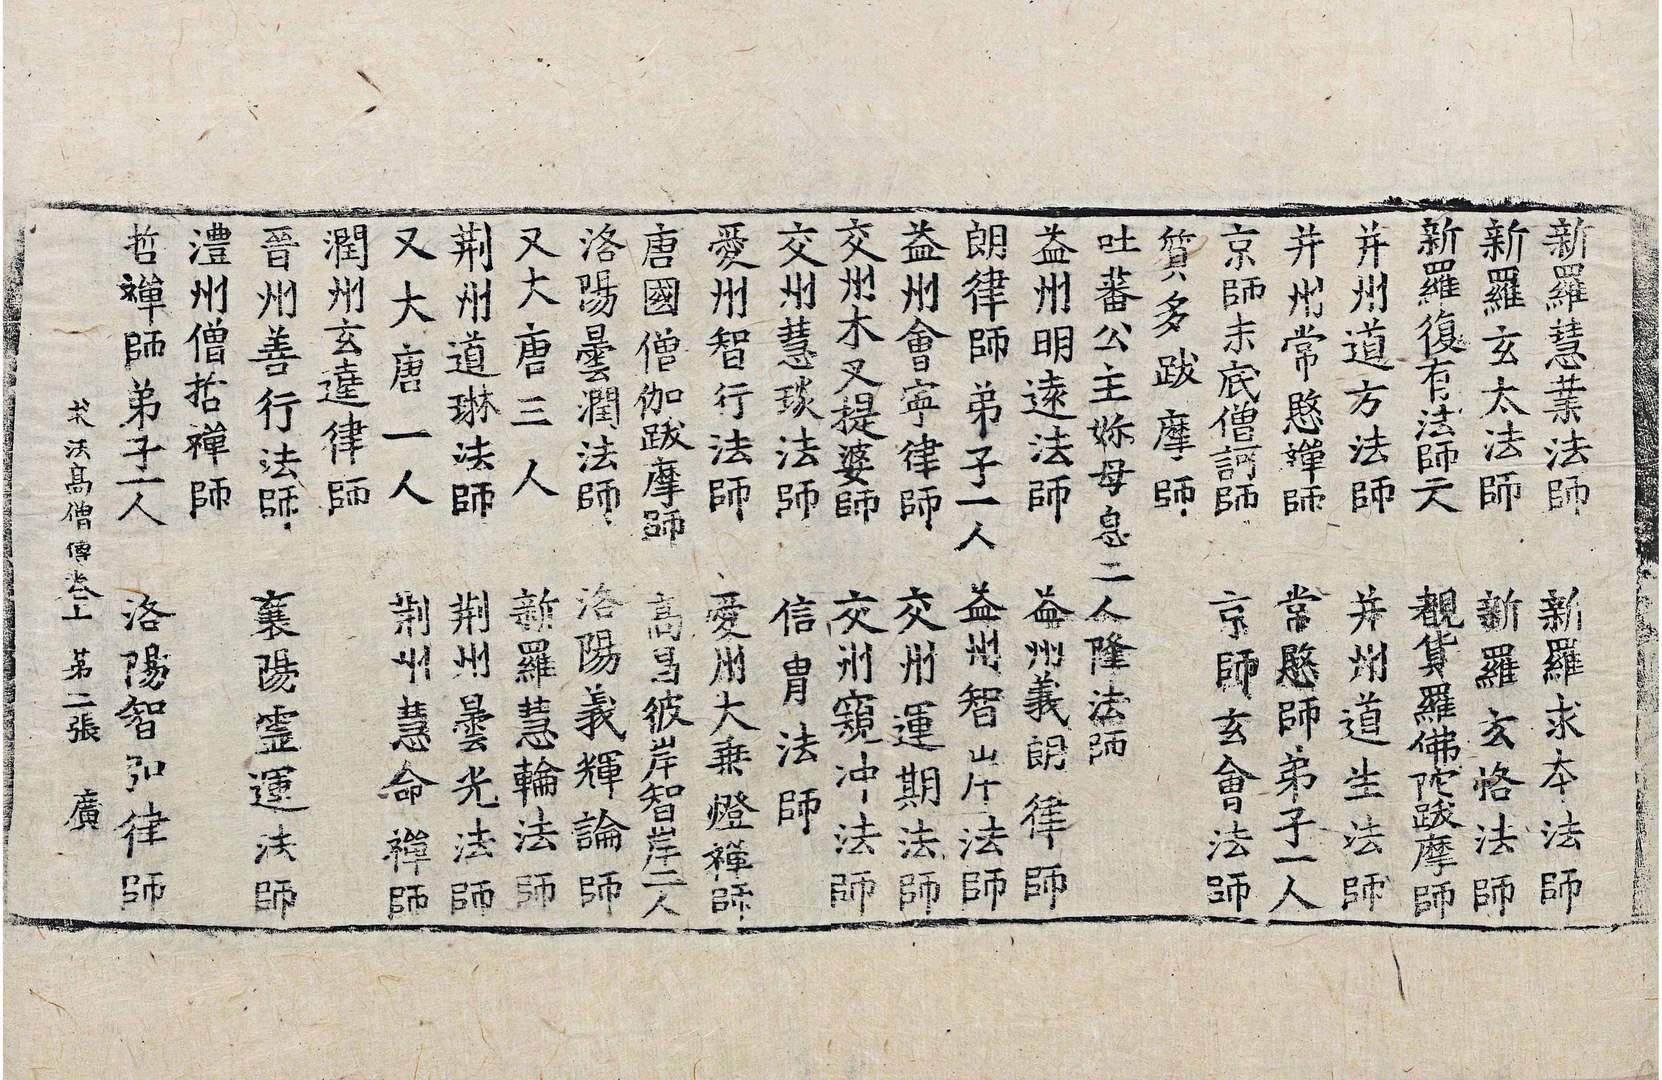 新羅慧業法師　新羅求本法師
新羅玄太法師　新羅玄恪法師
新羅復有法師二人　覩貨羅佛陀跋摩師
并州道方法師　并州道生法師
并州常慜禪師　常慜師弟子一人
京師末底僧訶師　京師玄會法師
質多跋摩師
吐蕃公主妳母息二人隆法師
益州明遠法師　益州義朗律師
朗律師弟子一人　益州智岸法師
益州會寧律師　交州運期法師
交州木叉提婆師　交州窺沖法師
交州慧琰法師　信胄法師
愛州智行法師　愛州大乗燈禪師
唐國僧伽跋摩師　高昌彼岸智岸二人
洛陽曇潤法師　洛陽義輝論師
又大唐三人　新羅慧輪法師
荆州道琳法師　荆州曇光法師
又大唐一人　荆州慧命禪師
潤州玄逵律師
晉州善行法師　襄陽靈運法師
澧州僧哲禪師
哲禪師弟子一人　洛陽智弘律師
求法高僧傳卷上　第二張　廣